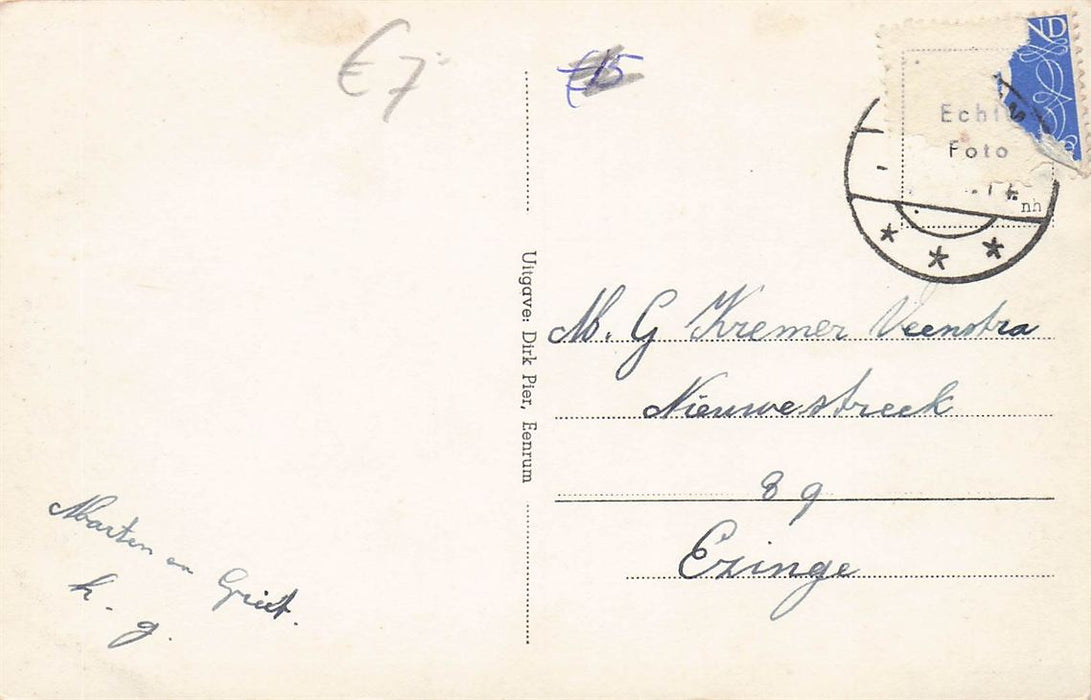 € 7-
£15
ND
Echt
Foto
nh
Uitgave: Dirk Pier, Eenrum
M. G Kremer Veenstra
Nieuwestreek
89
Ezinge
Marten en Griet.
h. g.